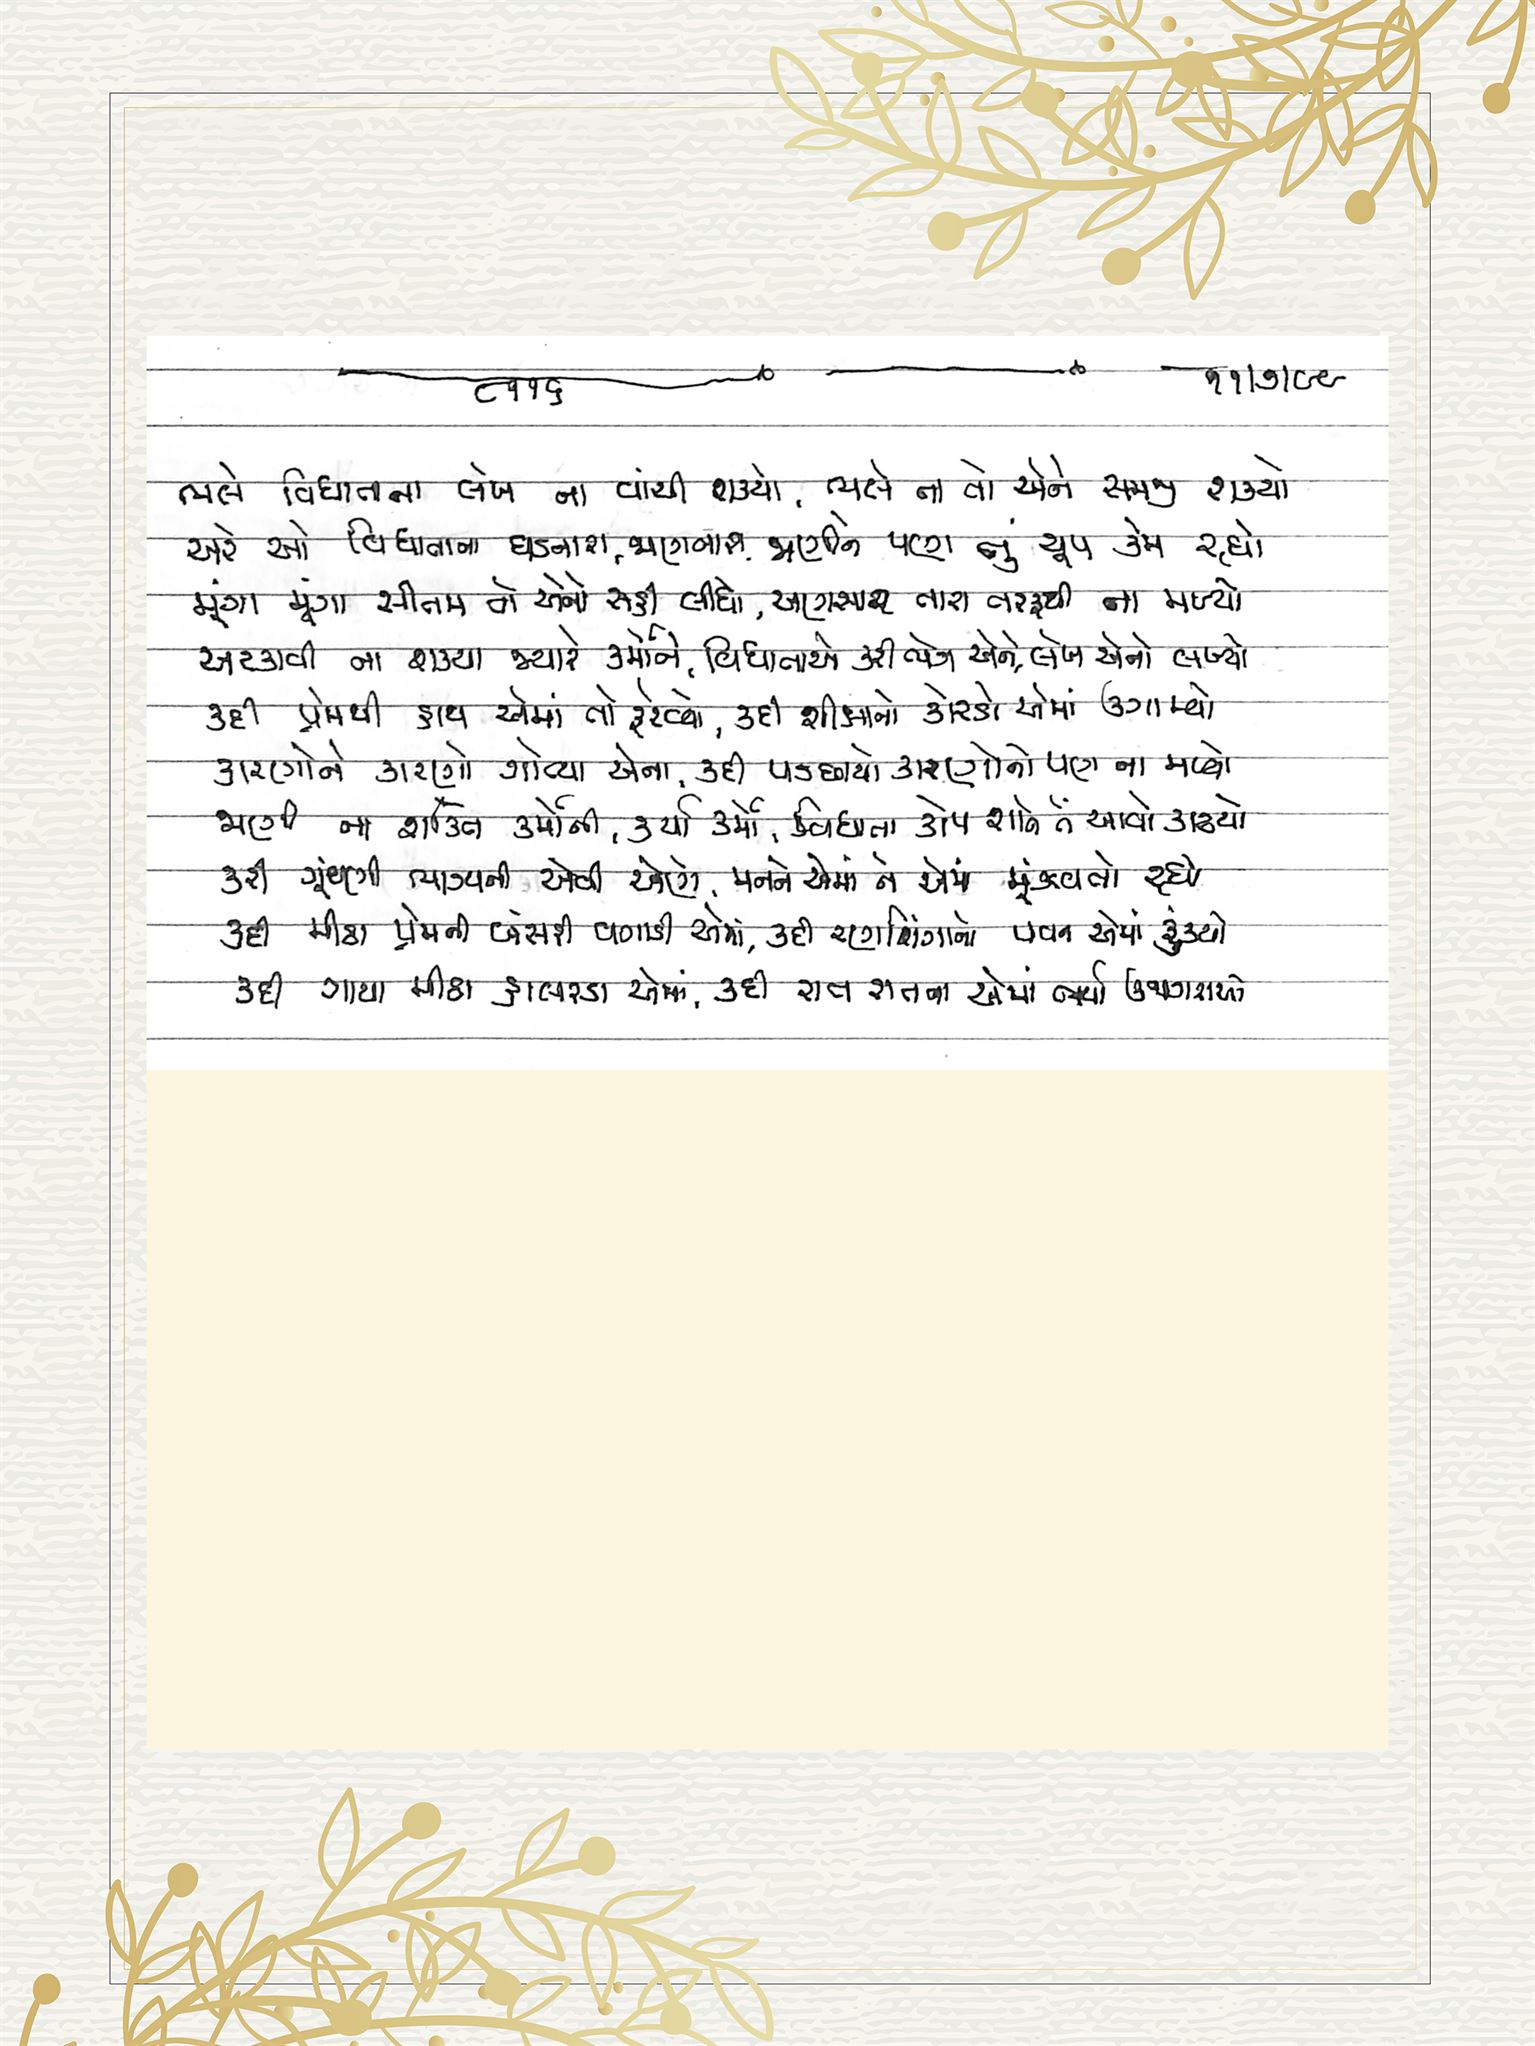 ૮૧૧૬ ૧૧/૭/૯૯
ભલે વિધાતાના લેખ ના વાંચી શક્યો, ભલે ના તો એને સમજી શક્યો
અરે ઓ વિધાતાના ઘડનારા, જાણનારા, જાણીને પણ તું ચૂપ કેમ રહ્યો
મૂંગા મૂંગા સીતમ તો એનો સહી લીધો, અણસાર તારા તરફથી ના મળ્યો
અટકાવી ના શક્યા જ્યારે કર્મોને, વિધાતાએ કરી ભેગા એને, લેખ એનો લખ્યો
કદી પ્રેમથી હાથ એમાં તો ફેરવ્યો, કદી શીક્ષાનો કોરડો એમાં ઉગામ્યો
કારણોને કારણો ગોત્યા એના, કદી પડછાયો કારણોનો પણ ના મળ્યો
જાણી ના શક્તિ કર્મોની, કર્યા કર્મો, વિધાતા કોપ શાને તેં આવો કાઢયો
કરી ગૂંથણી ભાગ્યની એવી એણે, મનને એમાં ને એમાં મૂંઝવતો રહ્યો
કદી મીઠા પ્રેમની બંસરી વગાડી એમાં, કદી રણશિંગાનો પવન એમાં ફૂંક્યો
કદી ગાયા મીઠા હાલરડા એમાં, કદી રાત રાતના એમાં કર્યા ઉજાગરાઓ